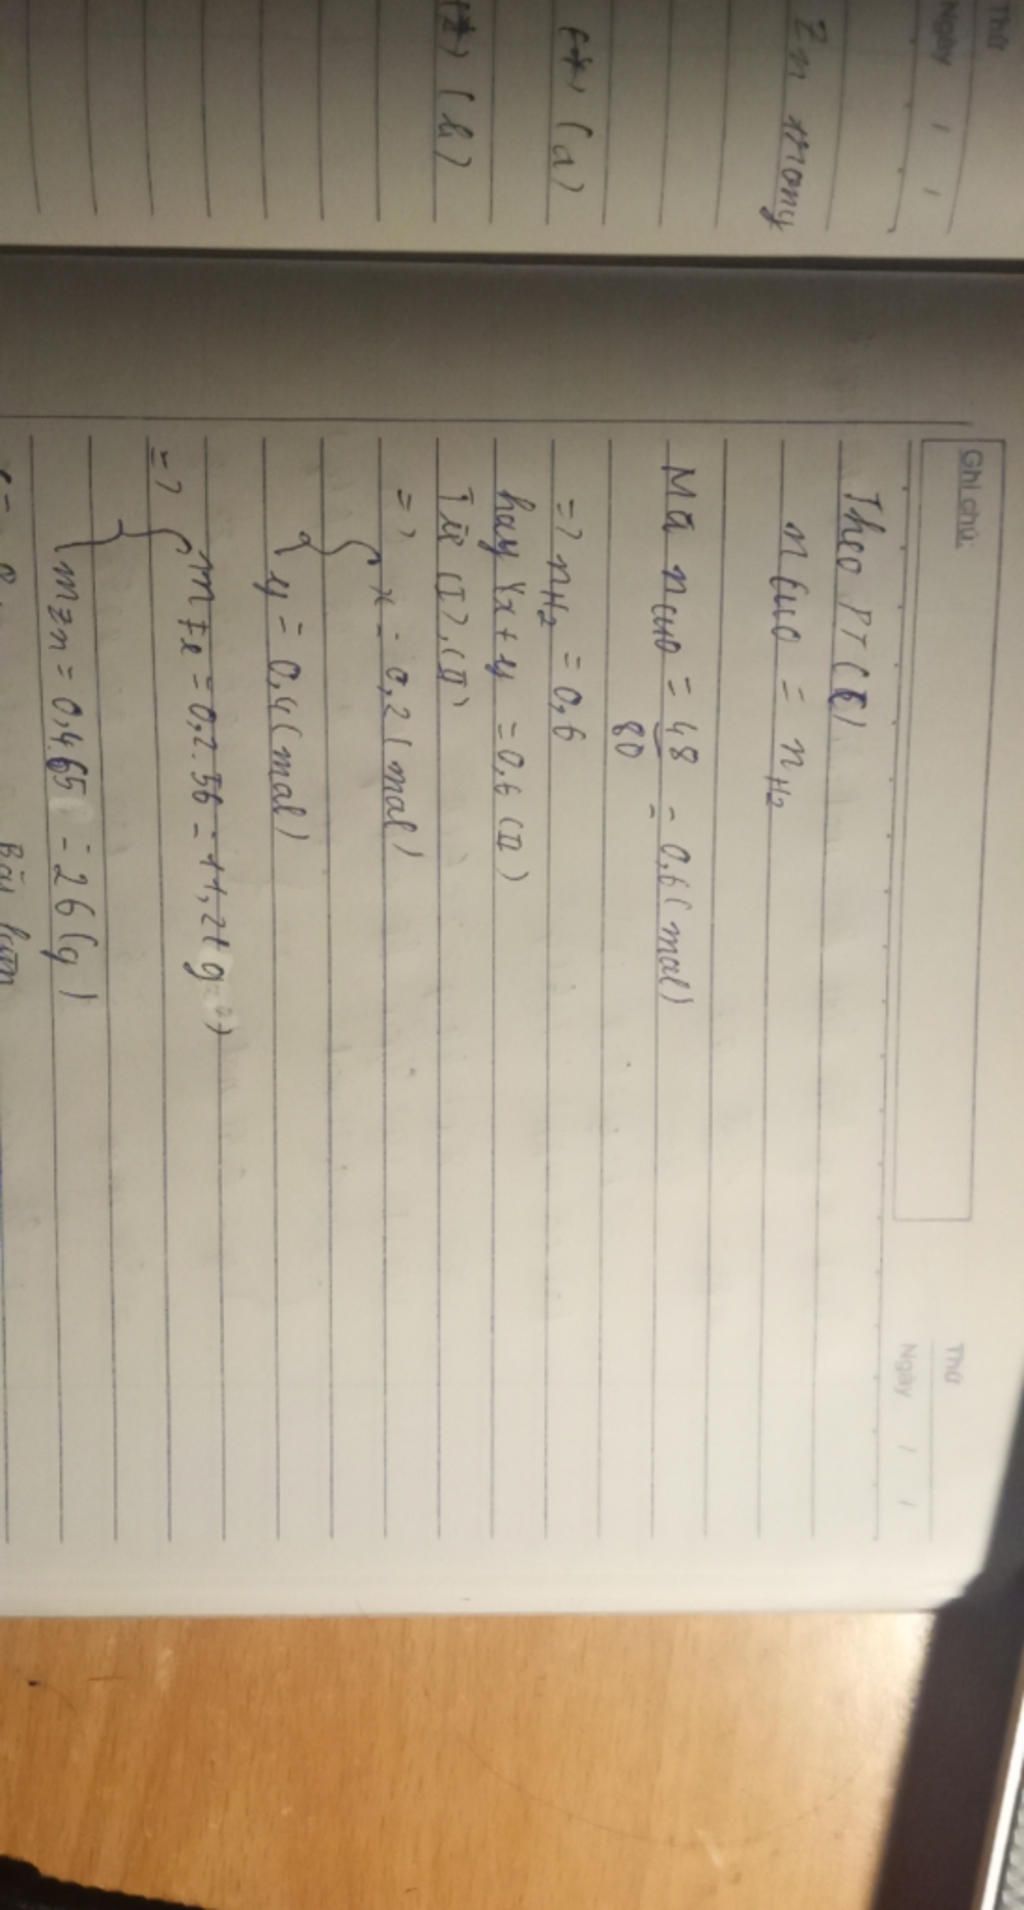 Thứ
Ngày / /
Zn trong
(*) (a)
(*) (b)
Ghi chú:
Thứ
Ngày / /
Theo PT
n CuO = n H2
Mà n CuO = 48/80 = 0,6 (mol)
=> n H2 = 0,6
hay x + y = 0,6 (II)
Từ (I), (II)
=> { x = 0,2 (mol)
y = 0,4 (mol)
=> { m Fe = 0,2.56 = 11,2 (g)
m Zn = 0,4.65 = 26 (g)
Bài làm